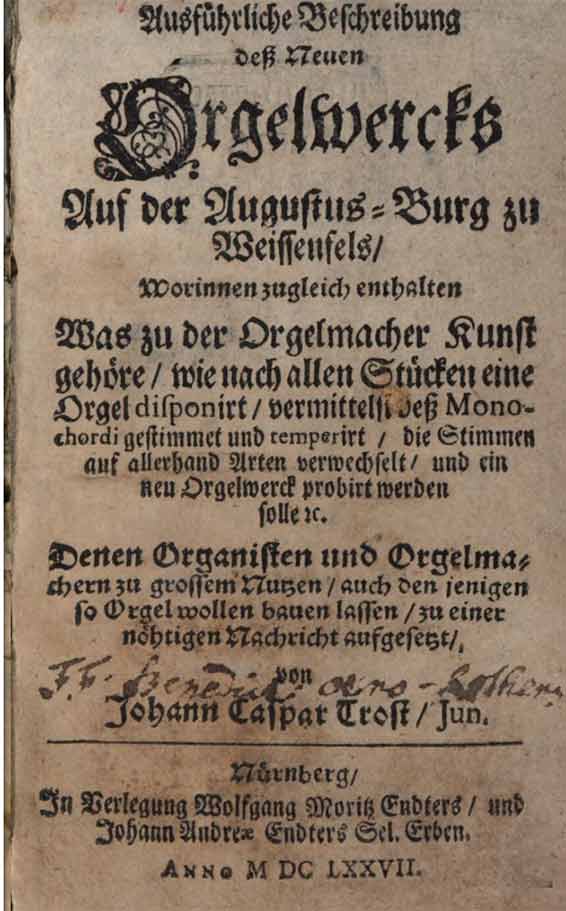 Ausführliche Beschreibung
deß Neuen
Orgelwercks
Auf der Augustus-Burg zu
Weissenfels/
Worinnen zugleich enthalten
Was zu der Orgelmacher Kunst
gehöre / wie nach allen Stücken eine
Orgel disponirt / vermittelst deß Mono-
chordi gestimmet und temperirt / die Stimmen
auf allerhand Arten verwechselt / und ein
neu Orgelwerck probirt werden
solle ꝛc.
Denen Organisten und Orgelma-
chern zu grossem Nutzen / auch den jenigen
so Orgel wollen bauen lassen / zu einer
nöhtigen Nachricht aufgesetzt /
von
Johann Caspar Trost / Jun.
Nürnberg /
In Verlegung Wolfgang Moritz Endters / und
Johann Andreæ Endters Sel. Erben.
ANNO M DC LXXVII.